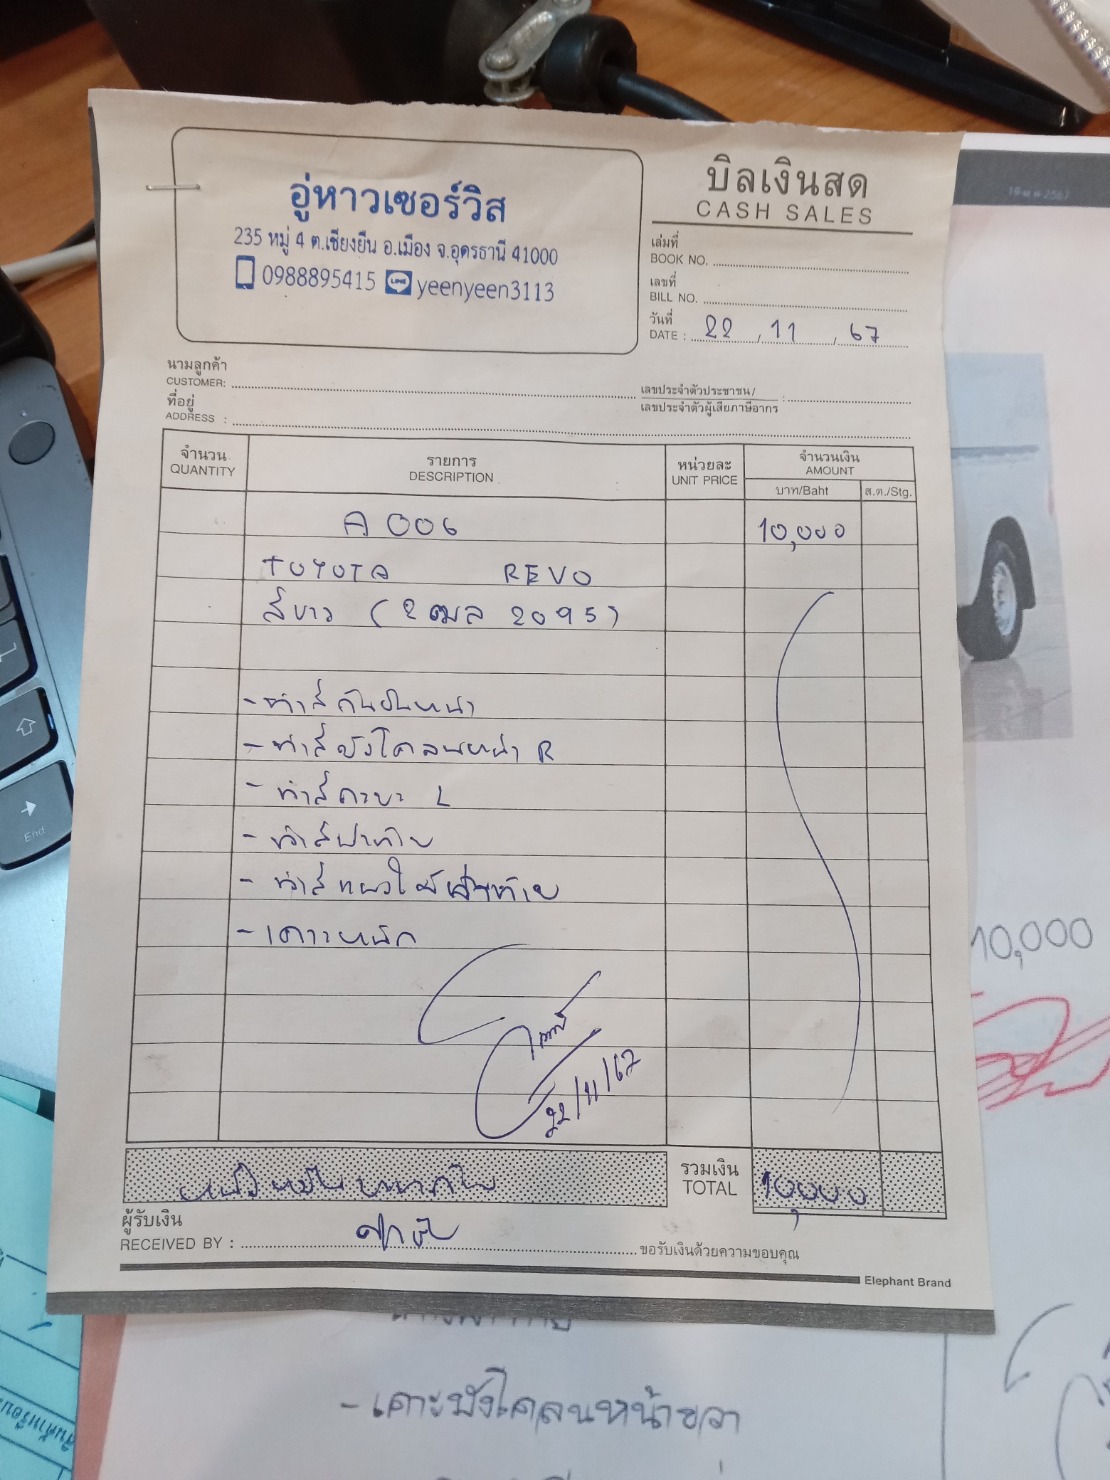 อู่หาวเซอร์วิส
235 หมู่ 4 ต.เชียงยืน อ.เมือง จ.อุดรธานี 41000
0988895415 LINE yeenyeen3113
บิลเงินสด
CASH SALES
เล่มที่
BOOK NO.
เลขที่
BILL NO.
วันที่
DATE : 22 / 11 / 67
นามลูกค้า
CUSTOMER:
ที่อยู่
ADDRESS :
เลขประจำตัวประชาชน/
เลขประจำตัวผู้เสียภาษีอากร :
จำนวน
QUANTITY
รายการ
DESCRIPTION
หน่วยละ
UNIT PRICE
จำนวนเงิน
AMOUNT
บาท/Baht
ส.ต./Stg.
A 006 10,000
TOYOTA REVO
สีขาว (2ฒล 2095)
- ทำสีกันชนหน้า
- ทำสีบังโคลนหน้า R
- ทำสีกะบะ L
- ทำสีฝาท้าย
- ทำสี ท้าย
- เคาะหนัก
22/11/67
หนึ่งหมื่นบาทถ้วน
รวมเงิน
TOTAL
10,000
ผู้รับเงิน
RECEIVED BY :
ขอรับเงินด้วยความขอบคุณ
Elephant Brand
10,000
- เคาะบังโคลนหน้าขวา